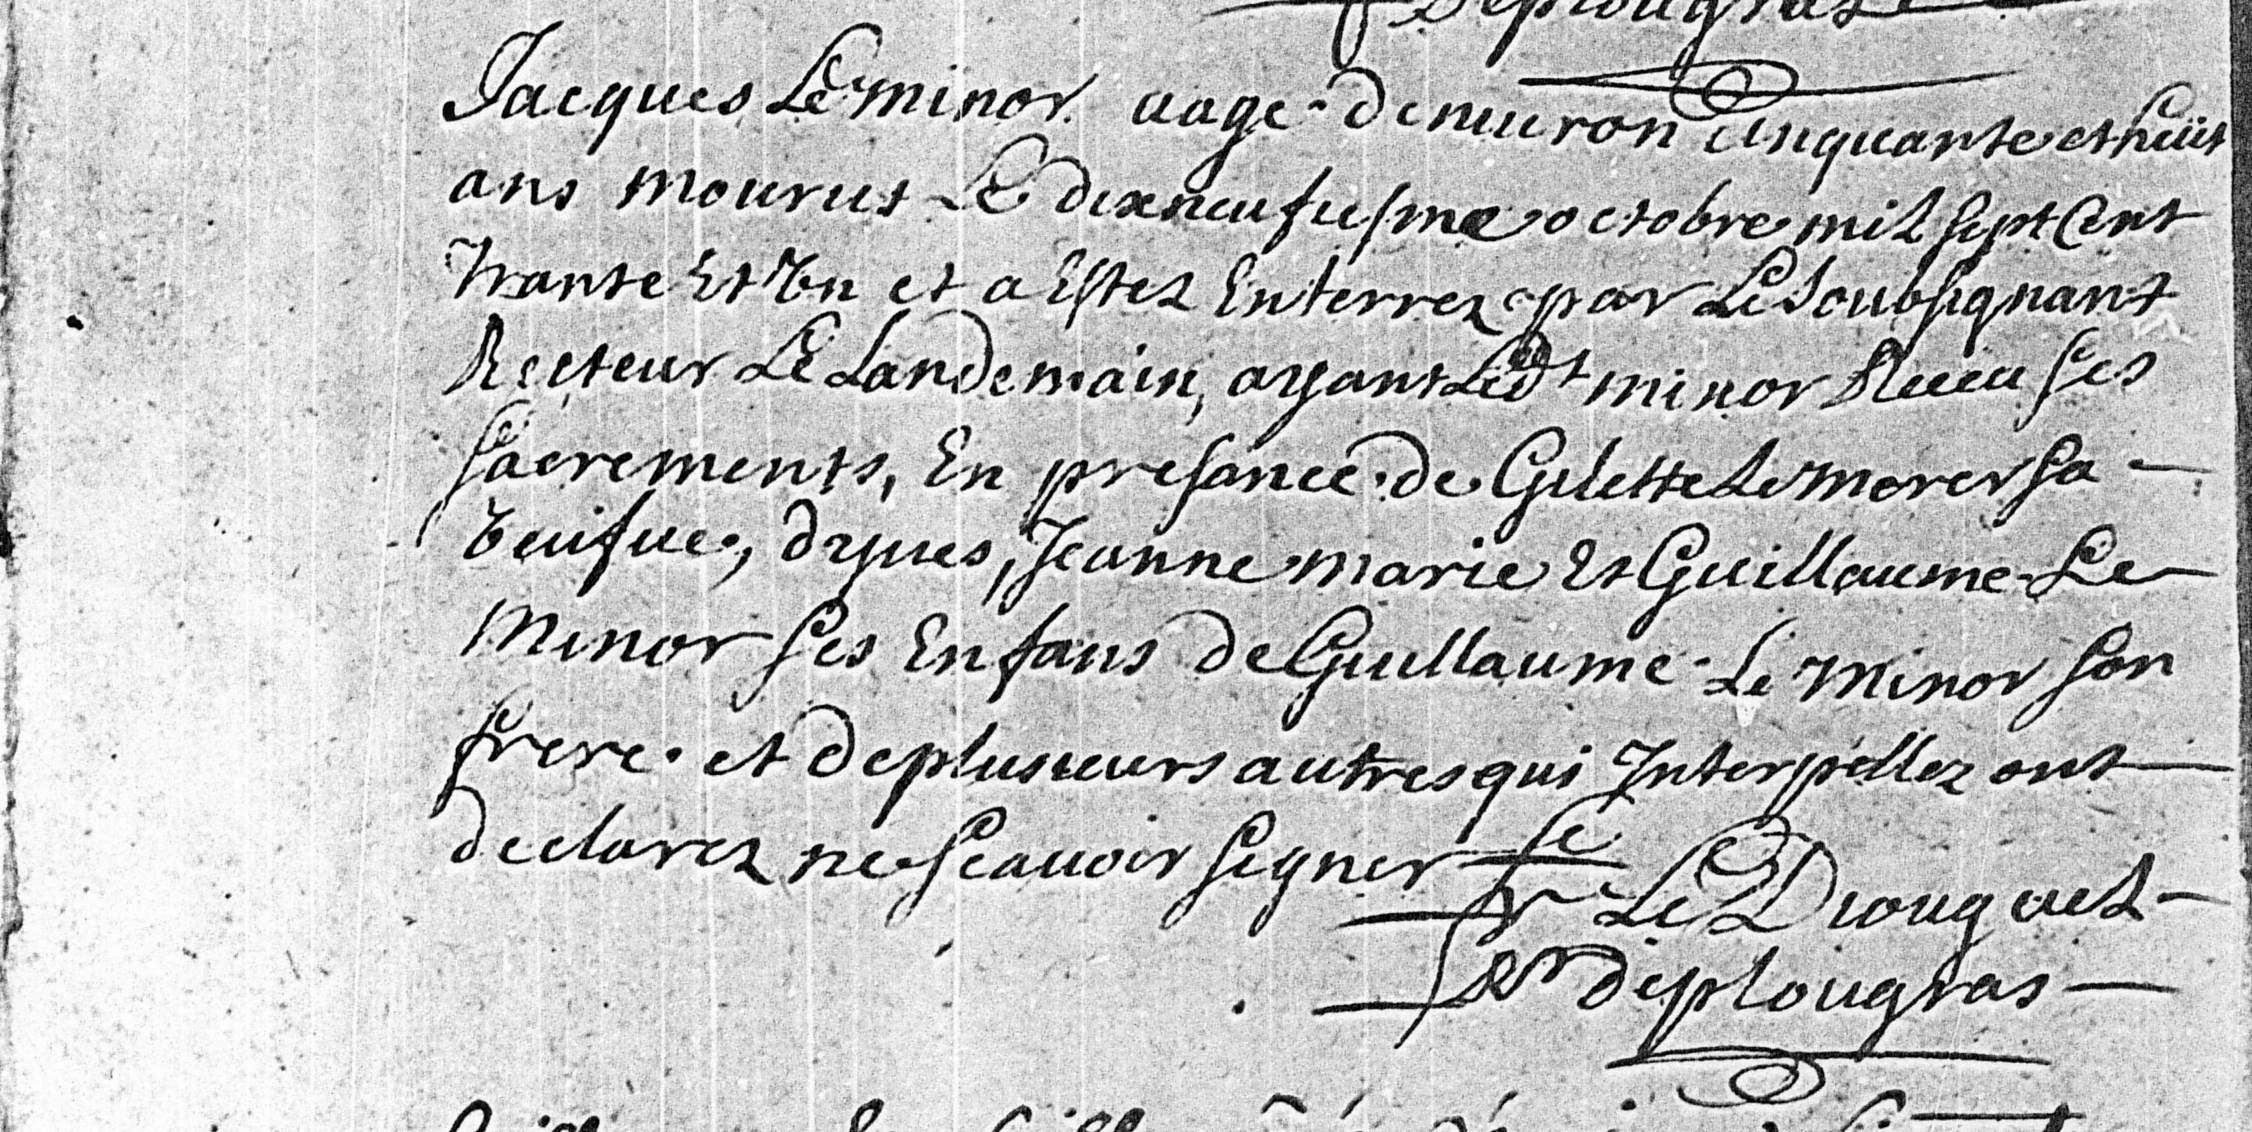 deplougras
Jacques Le minor aagé denuiron cinquante et huit
ans mourut Le dixneufuiesme octobre mil sept Cent
trante Et Vn et a Estez Enterrez par Le Soubsignant
Recteur Le Landemain, ayant Ledt minor Receu ses
sacrements, En presance de Gilette Le morer sa
Veufue, dyues, Jeanne marie Et Guillaume Le
Minor ses Enfans de Guillaume Le minor son
frere et de plusieurs autres qui Interpellez ont
declarez ne scauoir signer
Le Diouguel
Rr deplougras